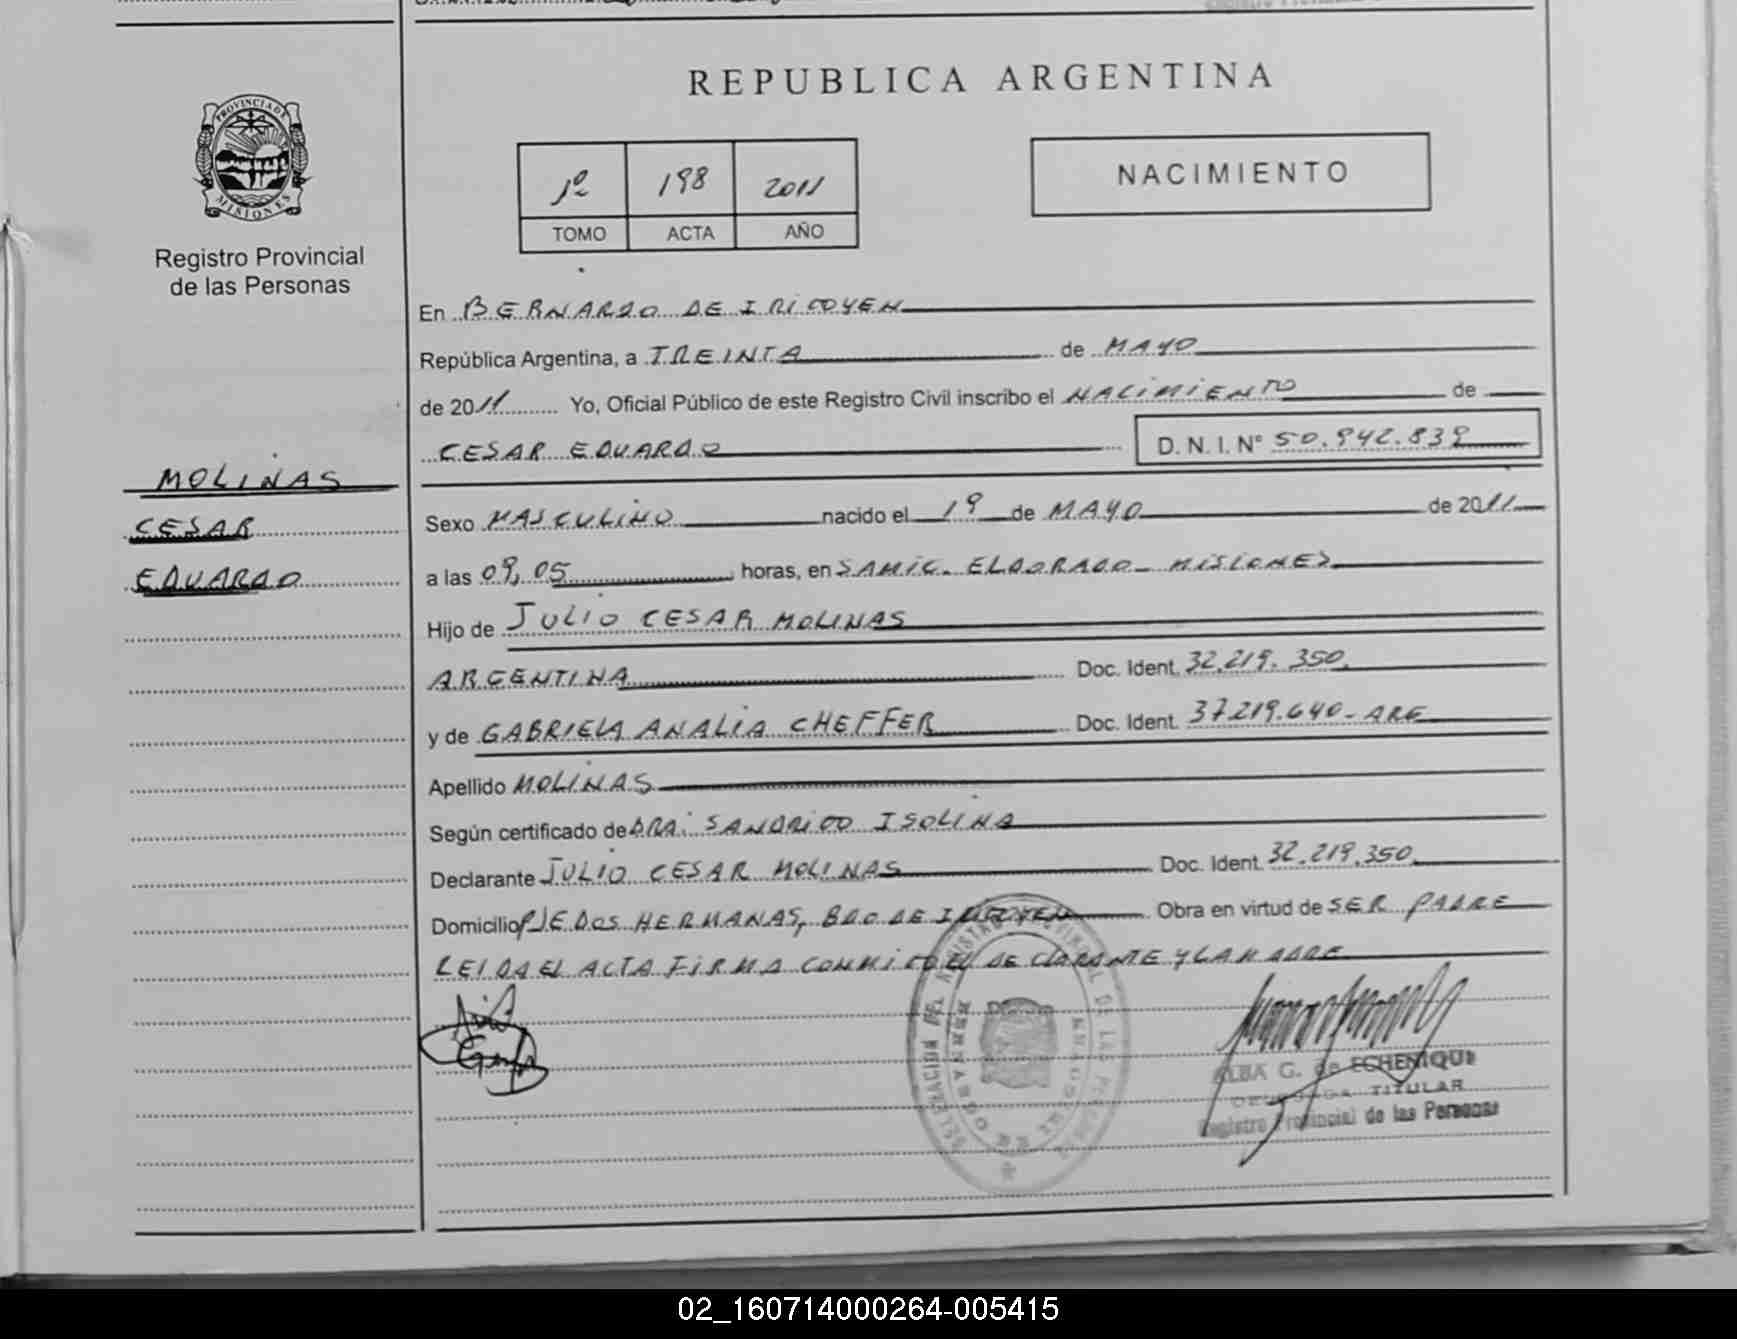 REPUBLICA ARGENTINA
PROVINCIA DE
MISIONES
Registro Provincial
de las Personas
1º 198 2011
TOMO ACTA AÑO
NACIMIENTO
En BERNARDO DE IRIGOYEN
República Argentina, a TREINTA de MAYO
de 2011 Yo, Oficial Público de este Registro Civil inscribo el NACIMIENTO de
CESAR EDUARDO D. N. I. Nº 50.942.839
MOLINAS
CESAR
EDUARDO
Sexo MASCULINO nacido el 19 de MAYO de 2011
a las 09,05 horas, en SAMIC. ELDORADO - MISIONES
Hijo de JULIO CESAR MOLINAS
ARGENTINA Doc. Ident. 32.219.350.
y de GABRIELA ANALIA CHEFFER Doc. Ident. 37219.640 - ARG
Apellido MOLINAS
Según certificado de DRA. SANDRIGO ISOLINA
Declarante JULIO CESAR MOLINAS Doc. Ident. 32.219.350
Domicilio PJE DOS HERMANAS, BDO DE IRIGOYEN Obra en virtud de SER PADRE
LEIDA EL ACTA FIRMA CONMIGO EL DECLARANTE Y LA MADRE
ALBA G. de ECHENIQUE
TITULAR
Registro Provincial de las Personas
02_160714000264-005415